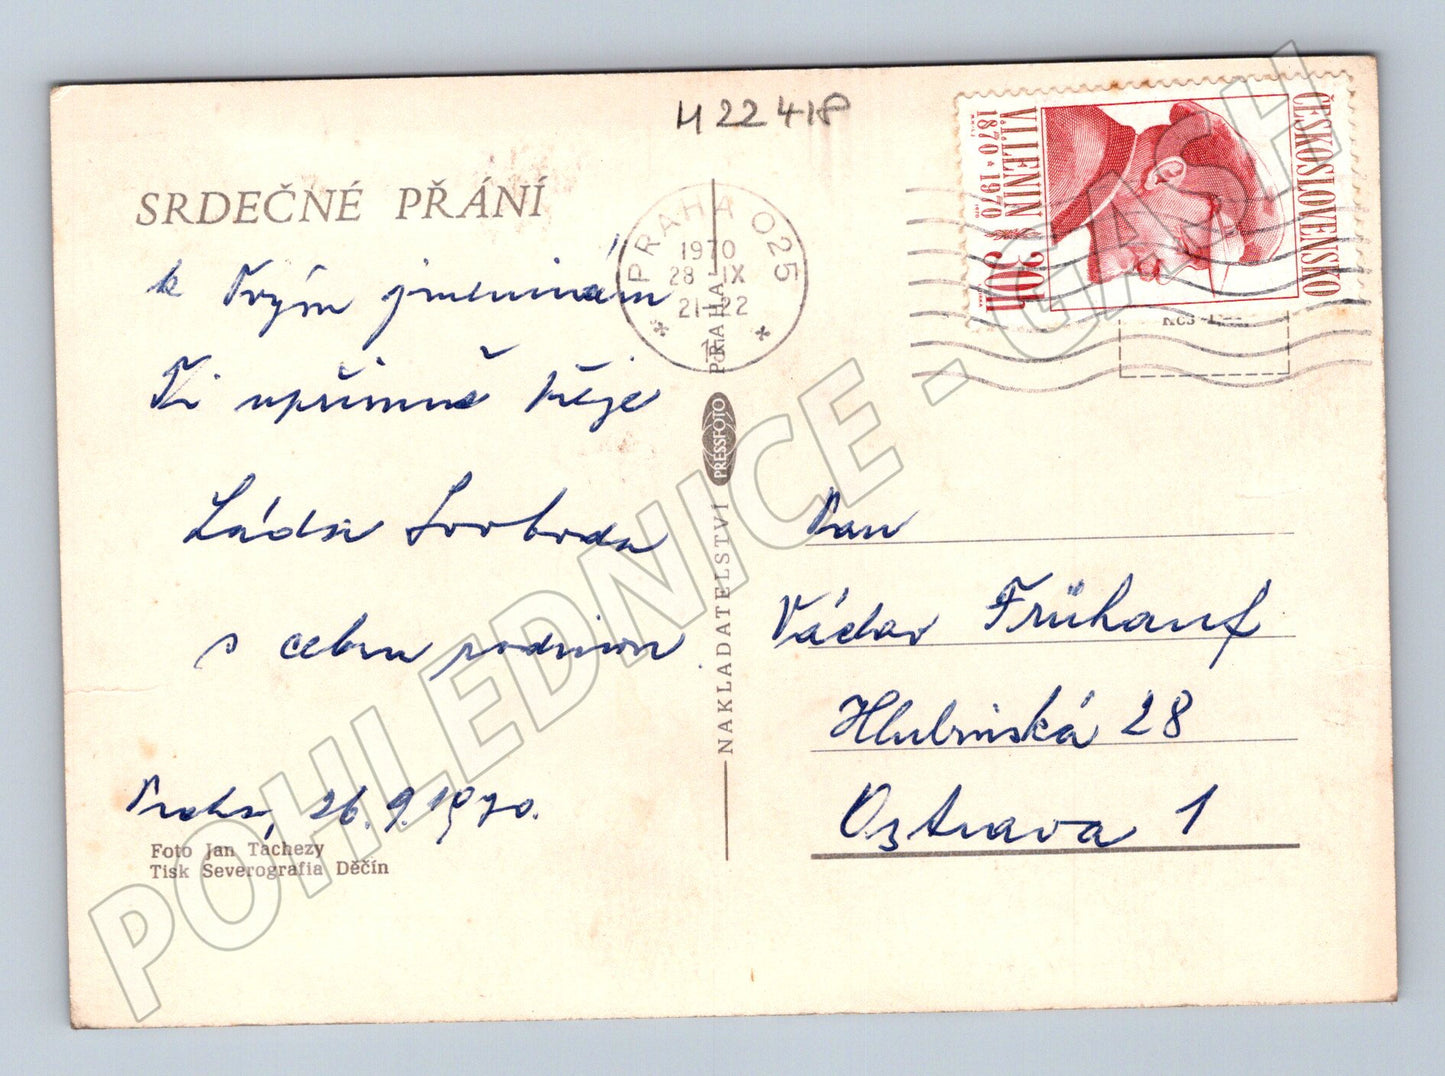 H 22 418
SRDEČNÉ PŘÁNÍ
k Tvým jmeninám
Ti upřimně přeje
Láďa Svoboda
s celou rodinou.
Praha, 26.9.1970.
Foto Jan Tachezy
Tisk Severografia Děčín
PRAHA 025
1970
28 IX
21-22
1
NAKLADATELSTVÍ PRESSFOTO PRAHA
ČESKOSLOVENSKO
V.I.LENIN
1870*1970
30h
Kčs
Pan
Václav Frühauf
Hlubinská 28
Ostrava 1
POHLEDNICE - GASH